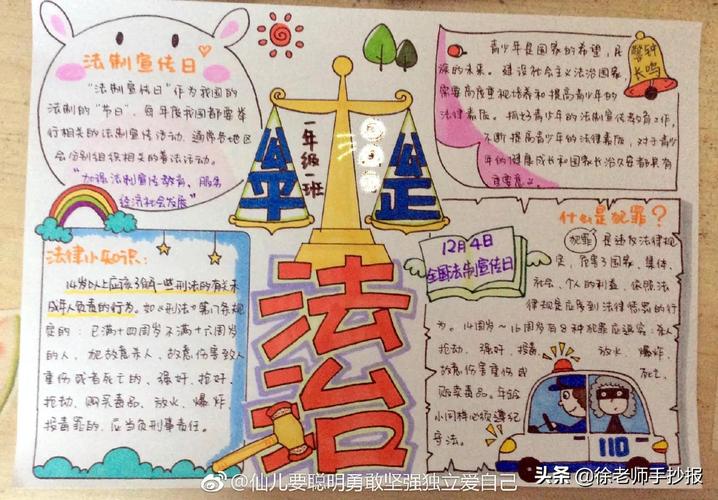 法制宣传日
"法制宣传日"作为我国的
法制的"节日",每年度我国都要举
行相关的法制宣传活动,通常各地区
会分别组织相关的普法活动。
"加强法制宣传教育、服务
经济社会发展"
一年级一班
公平
公正
警钟
长鸣
青少年是国家的希望,民
族的未来。建设社会主义法治国家,
需要高度重视培养和提高青少年的
法律素质。抓好青少年的法制宣传教育工作,
不断提高青少年的法律素质,对于青少
年的健康成长和国家长治久安都具有
重要意义。
法律小知识:
14岁以上应该了解一些刑法的有关未
成年人负责的行为。如《刑法》第17条规
定的:已满十四周岁不满十六周岁
的人,犯故意杀人、故意伤害致人
重伤或者死亡的、强奸、抢劫、
抢劫、购买毒品、放火、爆炸
投毒罪的,应当负刑事责任。
12月4日
全国法制宣传日
法治
什么是犯罪?
犯罪是违反法律规
定,危害了国家、集体、
社会、个人的利益,依照法
律规定应受到法律惩罚的行
为。14周岁~16周岁有8种犯罪应追究:杀人
抢劫、强奸、投毒、放火、爆炸、
故意伤害重伤或死亡、
贩卖毒品。年龄
小同样必须遵纪
守法。
110
@仙儿要聪明勇敢坚强独立爱自己
头条 @徐老师手抄报